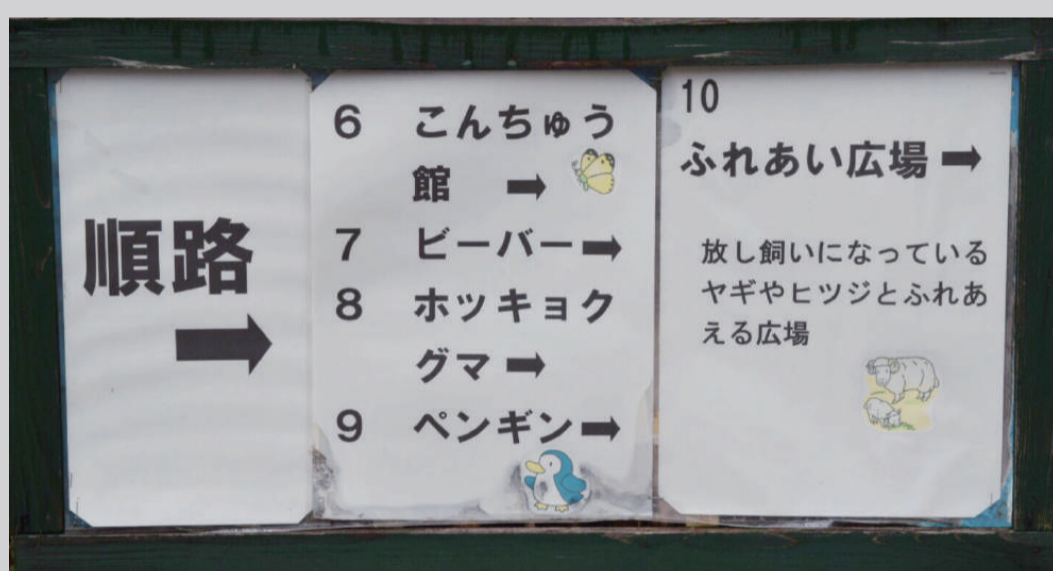 順路
→
6 こんちゅう
館 →
7 ビーバー→
8 ホッキョク
グマ→
9 ペンギン→
10
ふれあい広場→
放し飼いになっている
ヤギやヒツジとふれあ
える広場